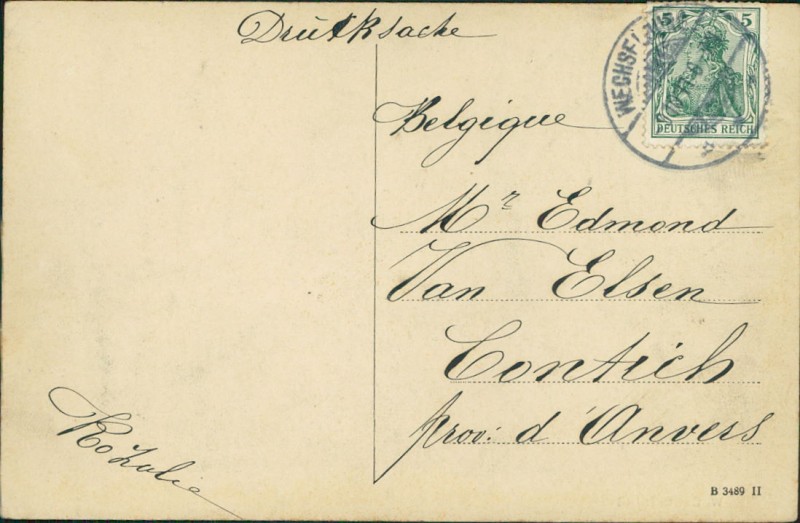 Drucksache
5 5
DEUTSCHES REICH
WECHSEL
Belgique
Mr Edmond
Van Elsen
Contich
prov: d'Anvers
B 3489 II